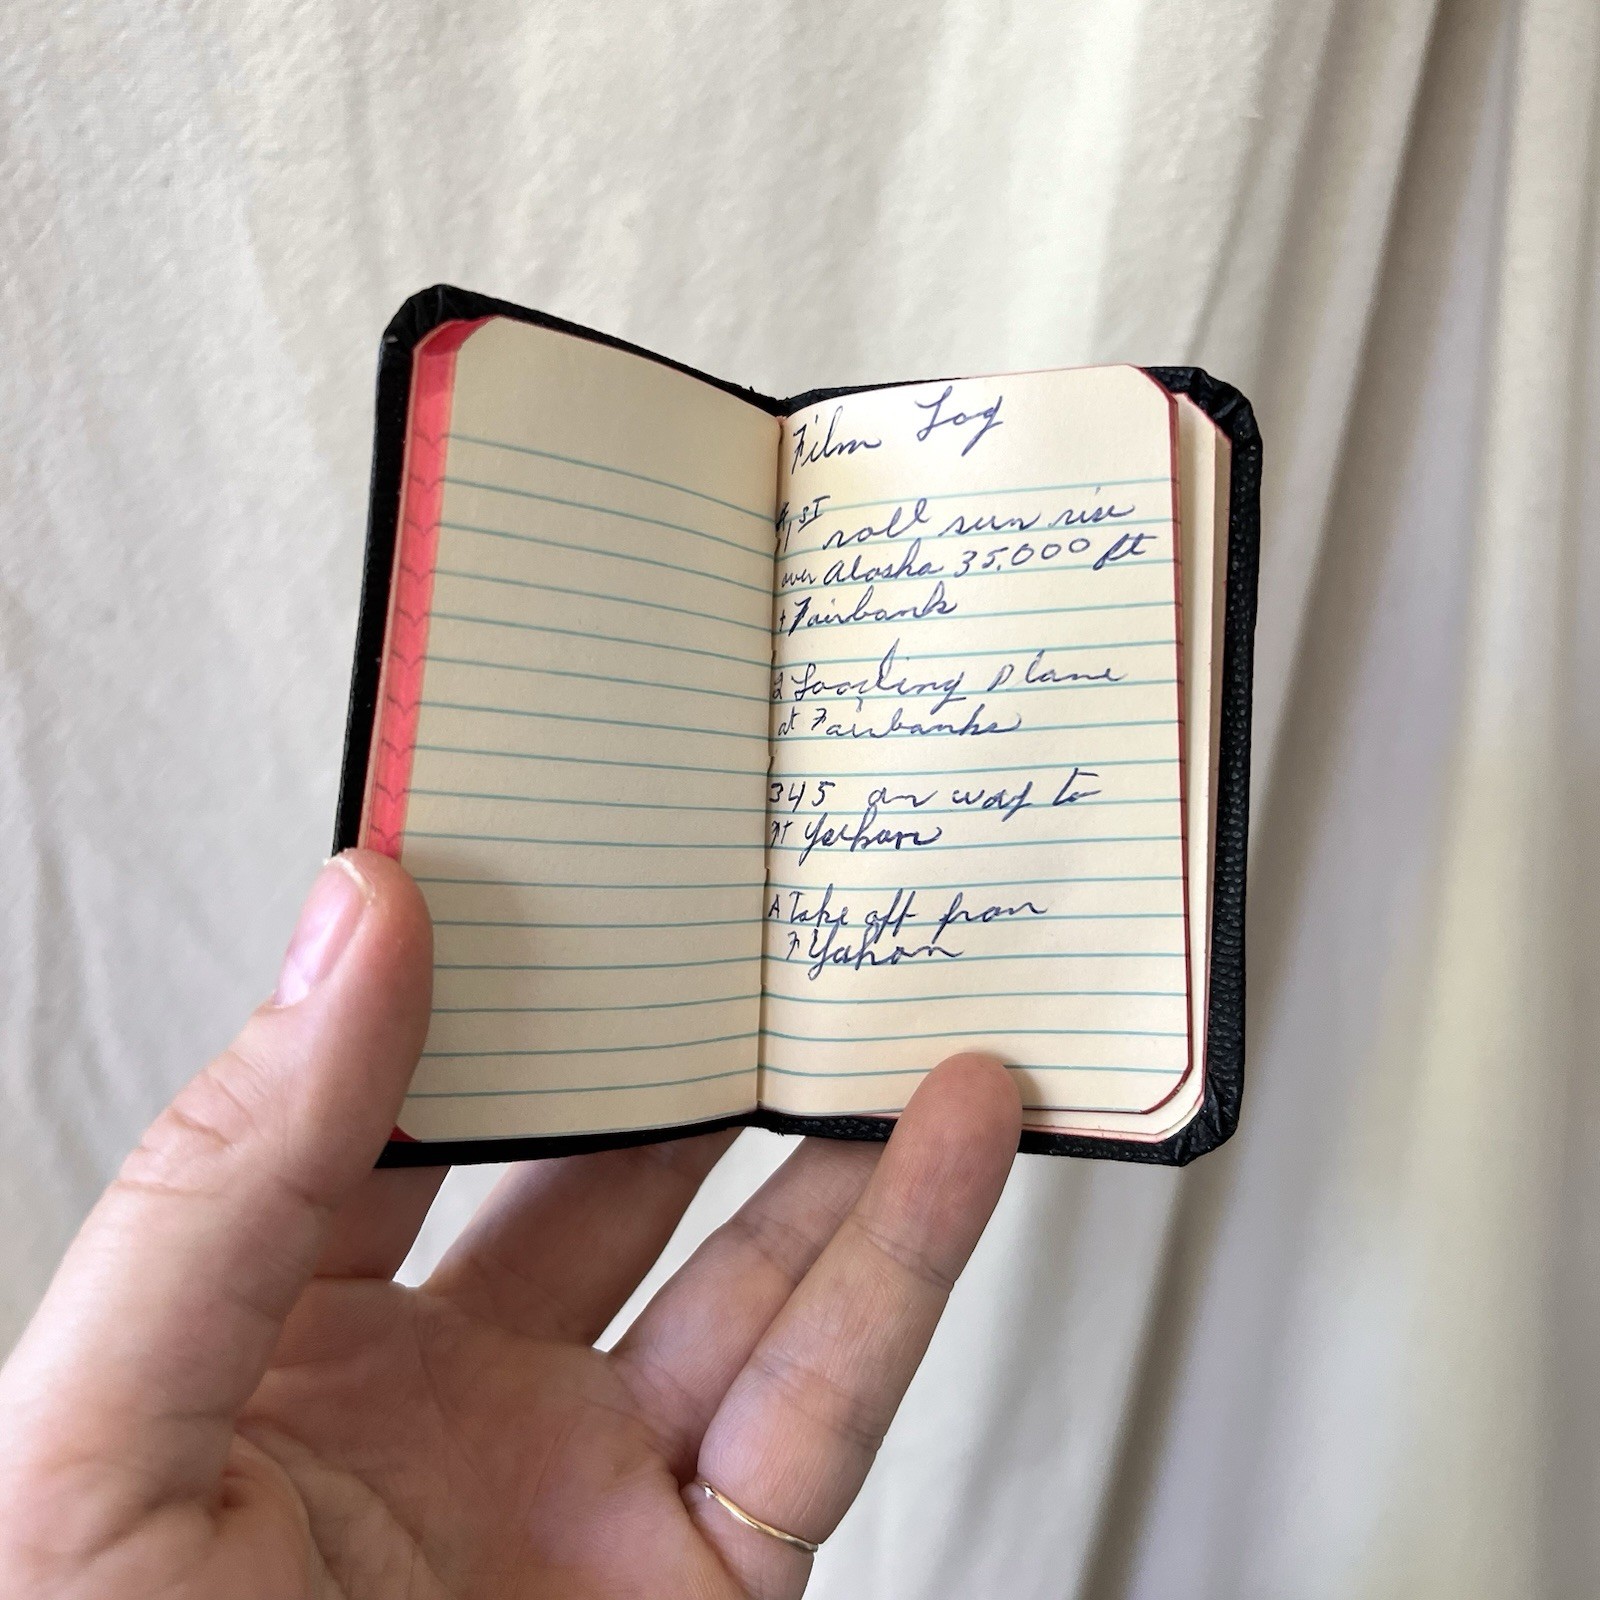 Film Log
1ST roll sun rise
over Alaska 35,000 ft
+ Fairbank
2 Loading plane
at Fairbanks
345 on way to
Ft Yukon
A Take off from
F Yukon